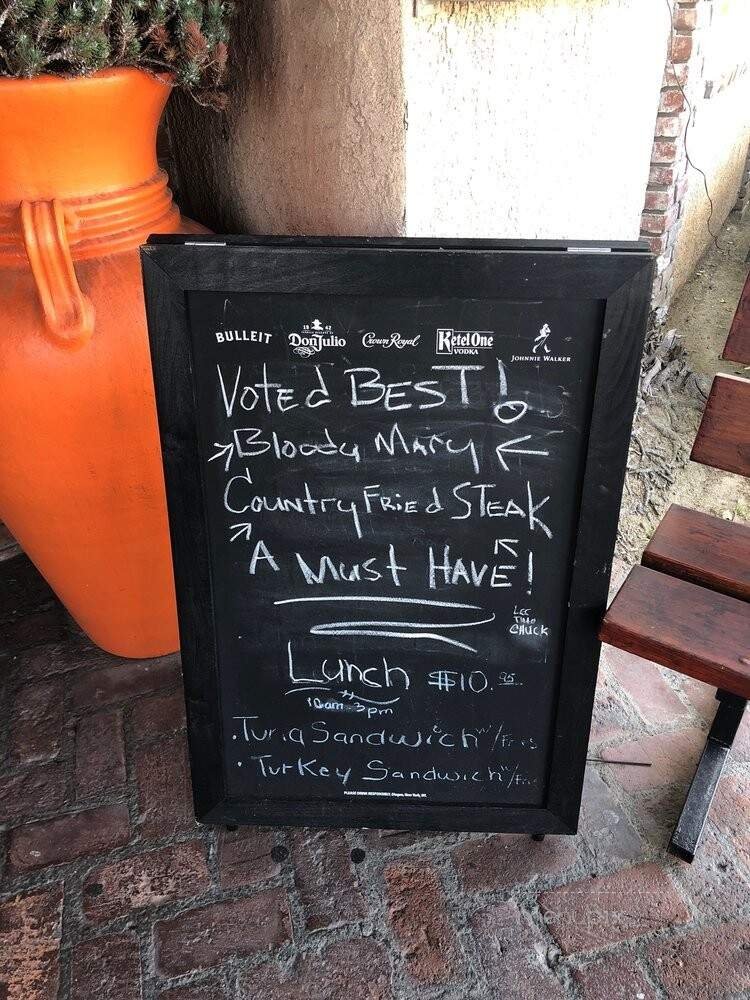 BULLEIT 1942 Don Julio Crown Royal Ketel One VODKA JOHNNIE WALKER
Voted BEST!
Bloody Mary
Country Fried STEAK
A Must HAVE!
CHUCK
Lunch $10.95
10am-3pm
. Tuna Sandwich w/Fries
. Turkey Sandwich w/Fries
PLEASE DRINK RESPONSIBLY. Diageo, New York, NY.